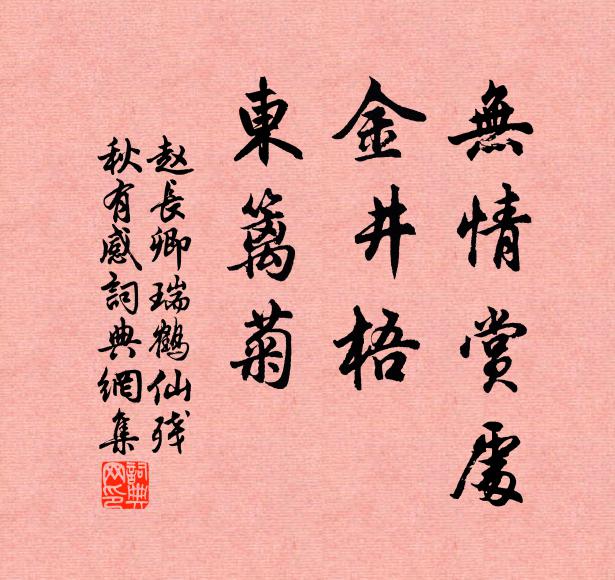 無情賞處
金井梧
東籬菊
赵長卿瑞鶴仙残
秋有感詞典網集
詞典网印